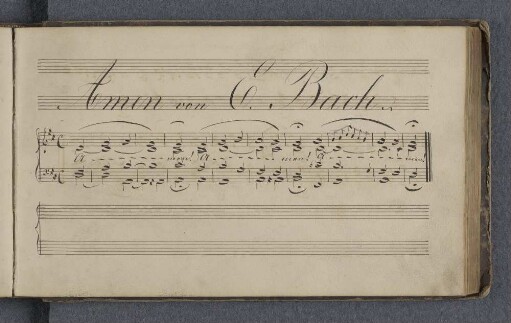 Amen von E. Bach.
A - - - - - - men! A - - - - - - men! A - - - - - - men!